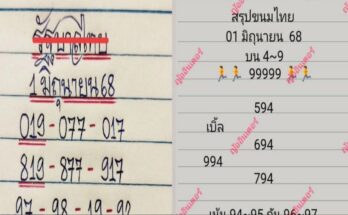 1 มิถุนายน 68
019 - 077 - 017
819 - 877 - 917
97 - 98 - 19 - 92
สรุปขนมไทย
01 มิถุนายน 68
บน 4~9
99999
594
เบิ้ล
694
994
794
94~95 96~97